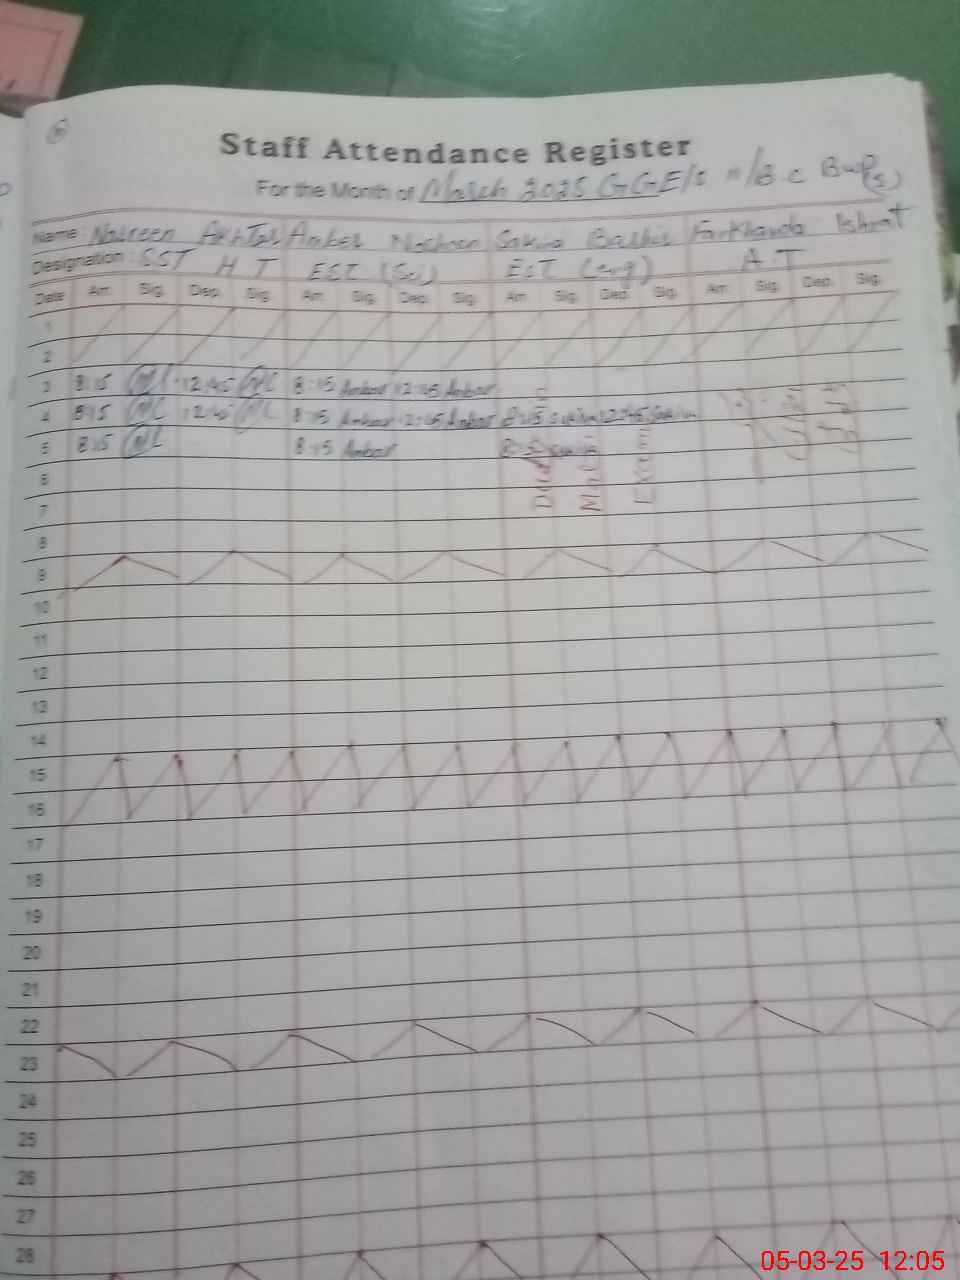 6
Staff Attendance Register
For the Month of March 2025 GGE/S BWP(s)
Name: Nasreen Akhtar Sakina Bashir Farkhanda Ishrat
Designation: SST H T EST (Sci) EST (eng) A T
Date Arr. Sig. Dep. Sig. Arr. Sig. Dep. Sig. Arr. Sig. Dep. Sig. Arr. Sig. Dep. Sig.
1
2
3 8:15 12:45 8:15 Ambar 12:45 Ambar
4 8:15 12:45 8:15 Ambar 12:45 Ambar 8:15 12:45
5 8:15 8:15 Ambar 8:15
6
7
8
9
10
11
12
13
14
15
16
17
18
19
20
21
22
23
24
25
26
27
28
05-03-25 12:05